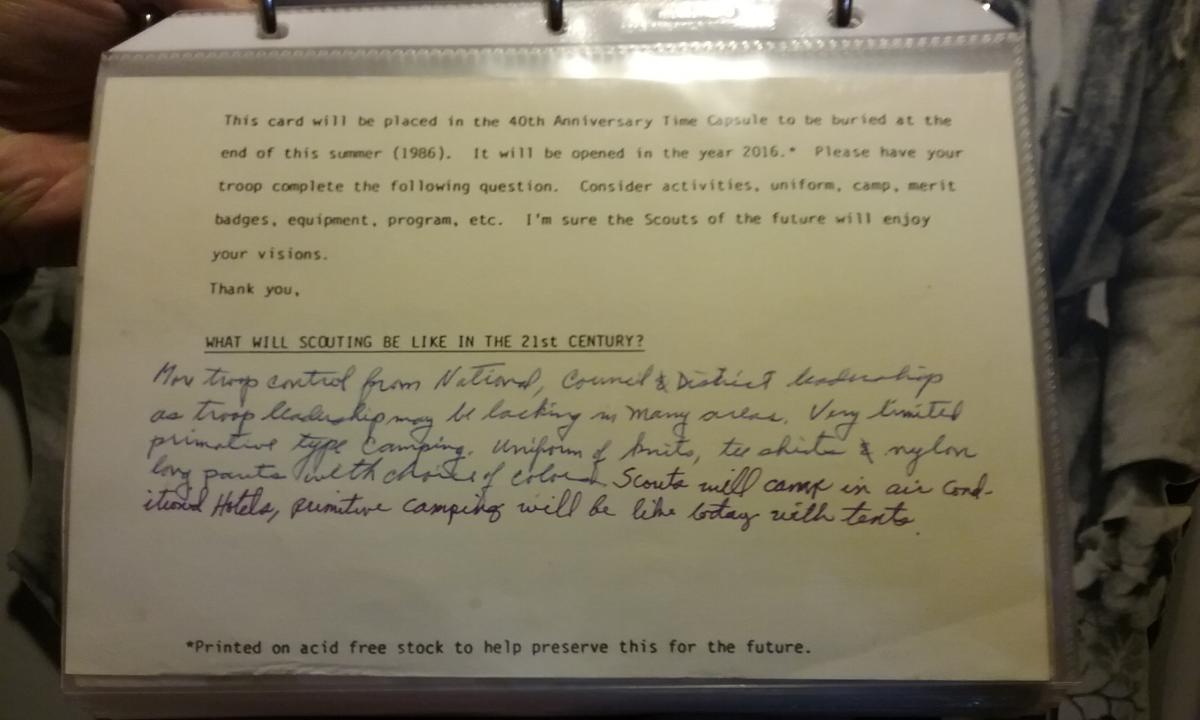 This card will be placed in the 40th Anniversary Time Capsule to be buried at the
end of this summer (1986). It will be opened in the year 2016.* Please have your
troop complete the following question. Consider activities, uniform, camp, merit
badges, equipment, program, etc. I'm sure the Scouts of the future will enjoy
your visions.
Thank you,
WHAT WILL SCOUTING BE LIKE IN THE 21st CENTURY?
troop control from National, Council & District leadership
as troop leadership may be lacking in many areas. Very limited
primative type camping. Uniform of knits, tee shirts & nylon
long pants with choice of colors. Scouts will camp in air cond-
itiond Hotels, primitive camping will be like today with tents.
*Printed on acid free stock to help preserve this for the future.